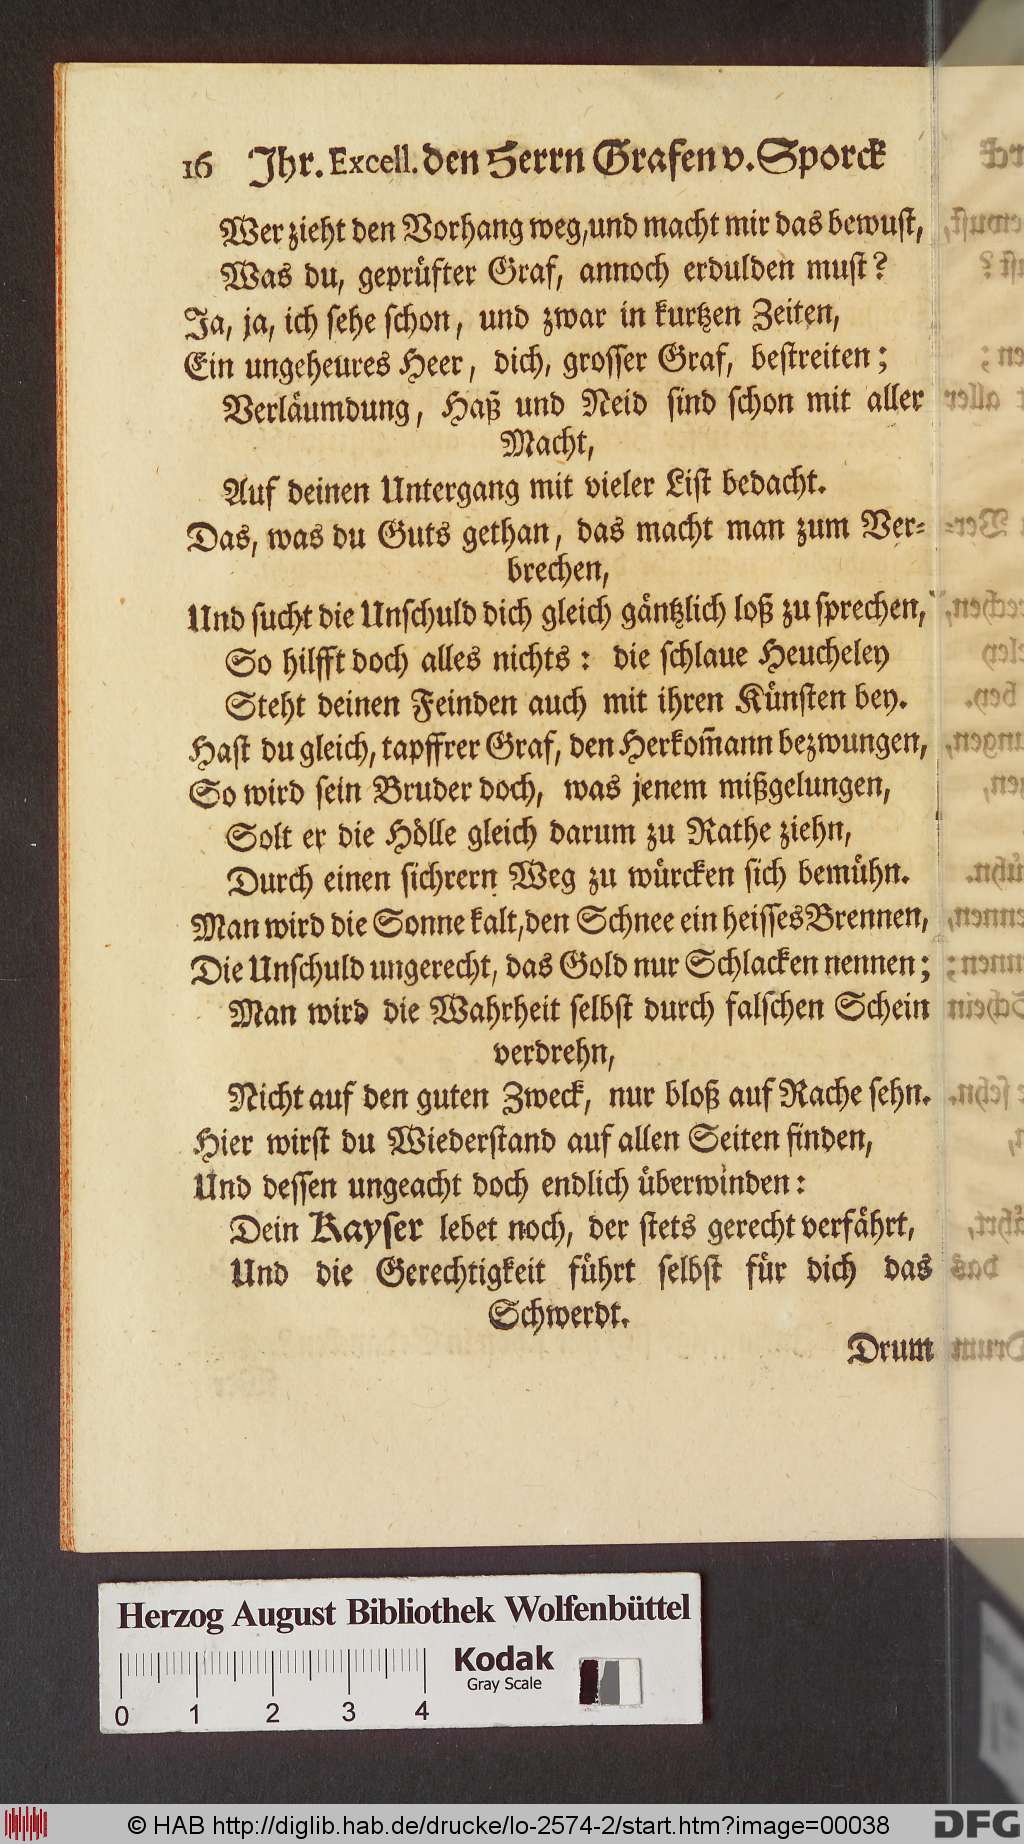 16 Jhr. Excell. den Herrn Grafen v. Sporck
Wer zieht den Vorhang weg, und macht mir das bewust,
Was du, geprüfter Graf, annoch erdulden must?
Ja, ja, ich sehe schon, und zwar in kurtzen Zeiten,
Ein ungeheures Heer, dich, grosser Graf, bestreiten;
Verläumdung, Haß und Neid sind schon mit aller
Macht,
Auf deinen Untergang mit vieler List bedacht.
Das, was du Guts gethan, das macht man zum Ver-
brechen,
Und sucht die Unschuld dich gleich gäntzlich loß zu sprechen,
So hilfft doch alles nichts: die schlaue Heucheley
Steht deinen Feinden auch mit ihren Künsten bey.
Hast du gleich, tapffrer Graf, den Herkom̃ann bezwungen,
So wird sein Bruder doch, was jenem mißgelungen,
Solt er die Hölle gleich darum zu Rathe ziehn,
Durch einen sichrern Weg zu würcken sich bemühn.
Man wird die Sonne kalt, den Schnee ein heisses Brennen,
Die Unschuld ungerecht, das Gold nur Schlacken nennen;
Man wird die Wahrheit selbst durch falschen Schein
verdrehn,
Nicht auf den guten Zweck, nur bloß auf Rache sehn.
Hier wirst du Wiederstand auf allen Seiten finden,
Und dessen ungeacht doch endlich überwinden:
Dein Kayser lebet noch, der stets gerecht verfährt,
Und die Gerechtigkeit führt selbst für dich das
Schwerdt.
Drum
Herzog August Bibliothek Wolfenbüttel
Kodak
Gray Scale
0 1 2 3 4
© HAB http://diglib.hab.de/drucke/lo-2574-2/start.htm?image=00038
DFG